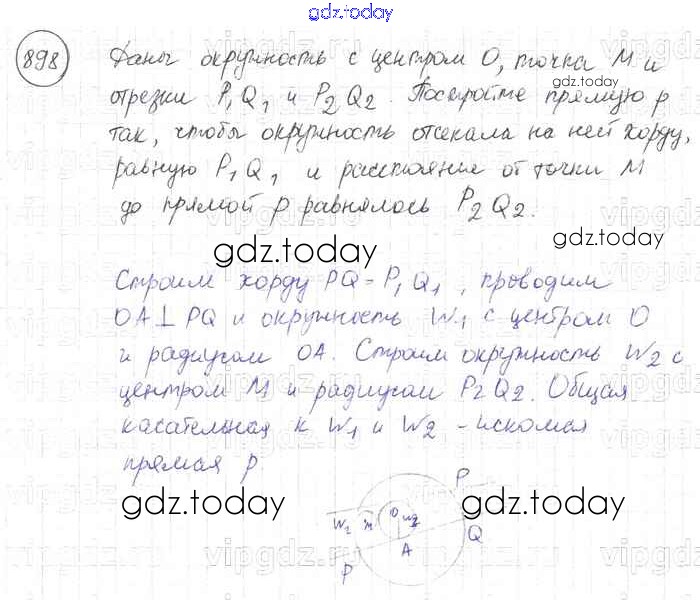 gdz.today
898
Даны окружность с центром О, точка М и
отрезки P₁Q₁ и P₂Q₂. Постройте прямую p
так, чтобы окружность отсекала на ней хорду,
равную P₁Q₁ и расстояние от точки М
до прямой p равнялось P₂Q₂.
Строим хорду PQ = P₁Q₁, проводим
OA⊥PQ и окружность W₁ с центром О
и радиусом ОА. Строим окружность W₂ с
центром М и радиусом P₂Q₂. Общая
касательная к W₁ и W₂ - искомая
прямая p.
gdz.today
gdz.today
gdz.today
gdz.today
gdz.today
gdz.today
P
W₂ m O W₂
Q
A
P